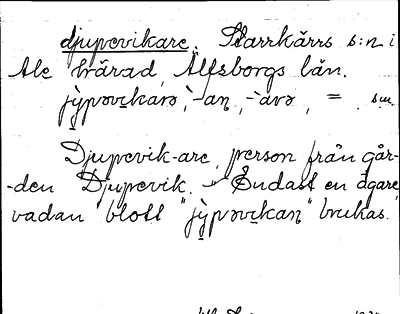 djupevikare. Starrkärrs s:n i
Ale härad, Älfsborgs län.
jy̆pəvikarə, -an, -arə, = s.m.
Djupevik-are, person från går-
-den Djupevik. - Endast en ägare
vadan blott "jy̆pəvikan" brukas.